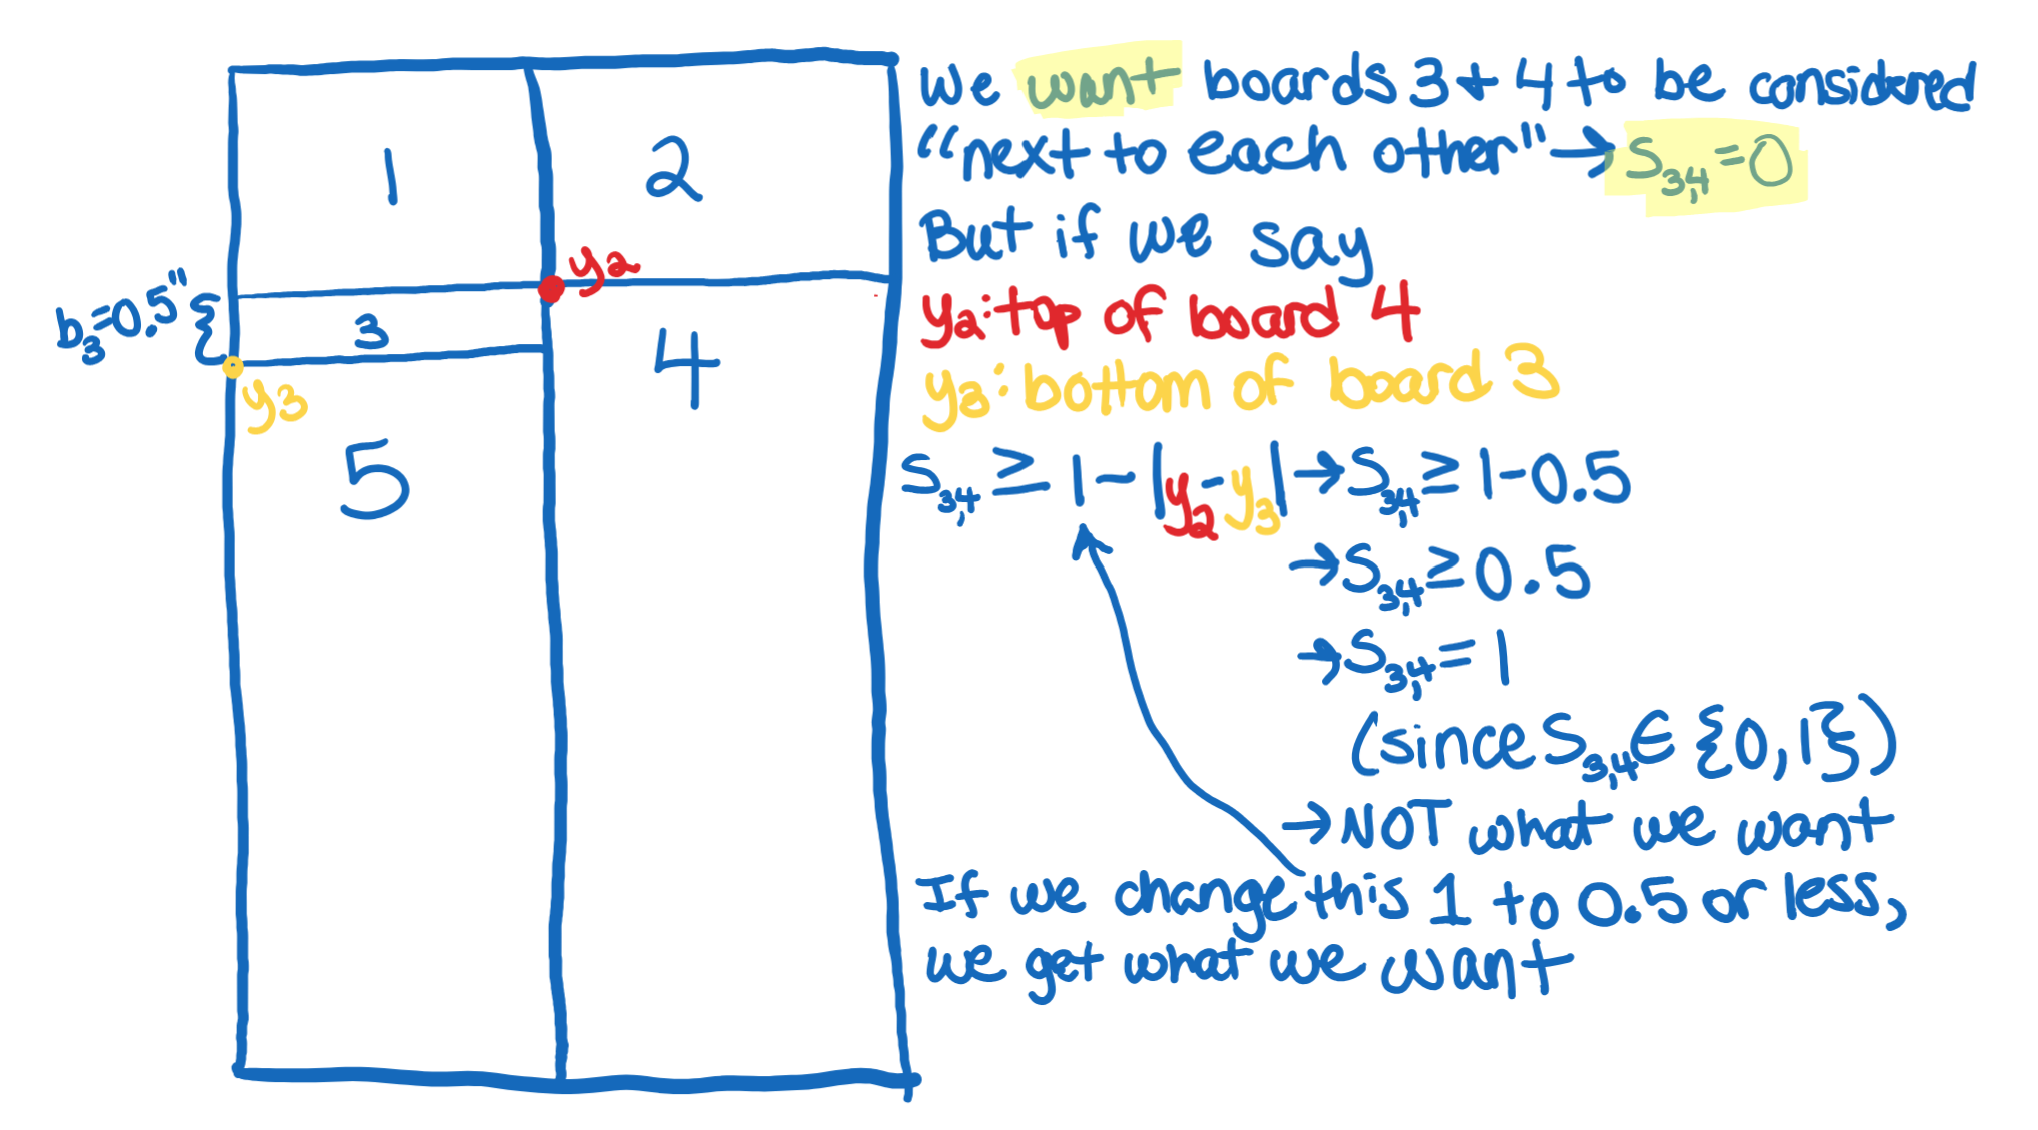 1
2
y2
b3=0.5" {
3
4
y3
5
We want boards 3 + 4 to be considered
"next to each other" → S3,4=0
But if we say
y2: top of board 4
y3: bottom of board 3
S3,4 ≥ 1-|y2-y3| → S3,4 ≥ 1-0.5
→ S3,4 ≥ 0.5
→ S3,4 = 1
(since S3,4 ∈ {0,1})
→ NOT what we want
If we change this 1 to 0.5 or less,
we get what we want